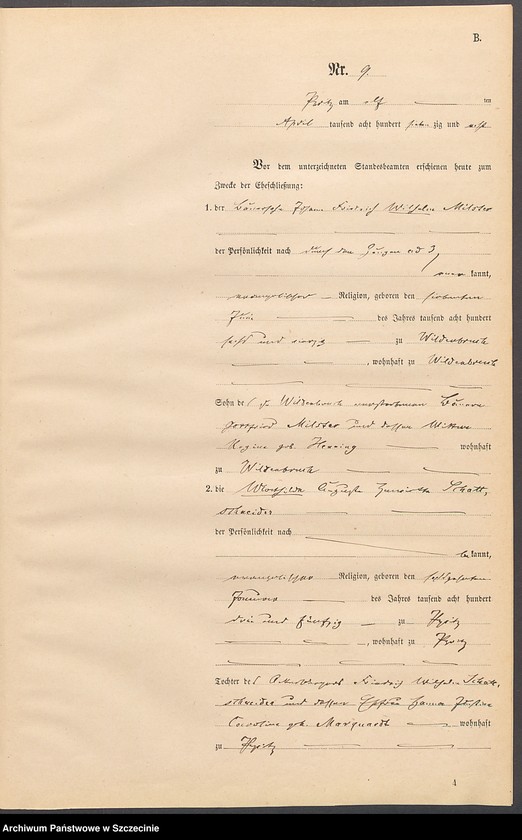 B.
Nr. 9.
am elf ten
April tausend acht hundert sieben zig und acht
Vor dem unterzeichneten Standesbeamten erschienen heute zum
Zwecke der Eheschließung:
1. der Johann Friedrich Wilhelm Milster
der Persönlichkeit nach durch den Zeugen ad 3,
kannt,
evangelischer Religion, geboren den siebenten
Juni des Jahres tausend acht hundert
sechs und vierzig zu Wildenbruch
, wohnhaft zu Wildenbruch
Sohn des zu Wildenbruch verstorbenen Bauern
Gottfried Milster und dessen Wittwe
Regine geb. Hensing wohnhaft
zu Wildenbruch
2. die Auguste Henriette Schatt-
schneider
der Persönlichkeit nach
be kannt,
evangelischer Religion, geboren den
Januar des Jahres tausend acht hundert
drei und fünfzig zu
, wohnhaft zu
Tochter des Ackerbürgers Friedrich Wilhelm Schatt-
schneider und dessen Ehefrau Hanna Justine
Caroline geb. Marquardt wohnhaft
zu
4
Archiwum Państwowe w Szczecinie